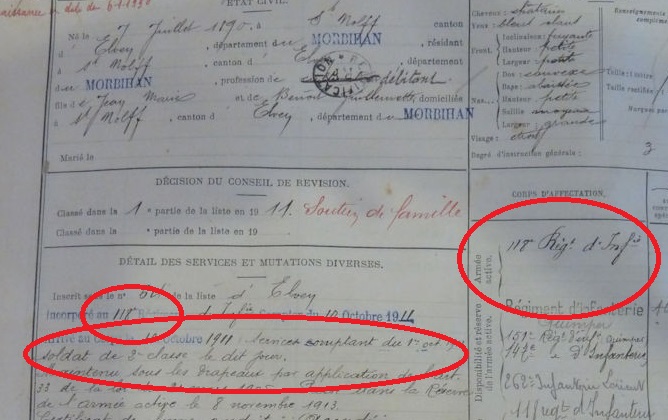 ÉTAT CIVIL.
Né le 7 Juillet 1890, à St Nolff, canton
d'Elven, département du MORBIHAN, résidant
à St Nolff, canton d'Elven, département
du MORBIHAN, profession de débitant
fils de Jean Marie et de Benoit Guillemette, domiciliés
à St Nolff, canton d'Elven, département du MORBIHAN
Marié le
Cheveux : chatains
Yeux :
Front. Inclinaison : fuyante
Hauteur : petite
Largeur : petite
Nez. Dos : convexe
Base :
Hauteur : petite
Saillie : moyenne
Largeur : grande
Visage :
Degré d'instruction générale : 3
Renseignements
Taille : 1
Taille rectifiée :
Marques par
DÉCISION DU CONSEIL DE REVISION.
Classé dans la 1e partie de la liste en 1911. Soutien de famille
Classé dans la e partie de la liste en 19
DÉTAIL DES SERVICES ET MUTATIONS DIVERSES.
Inscrit sous le n° 61 de la liste d'Elven
Incorporé au 118e Régiment d'Infie à compter du 10 Octobre 1911
Arrivé au corps le 10 Octobre 1911 services comptant du 1er oct
soldat de 2e classe le dit jour.
Maintenu sous les drapeaux par application de l'art.
33 de la loi du 21 mars 1905 Passé dans la Réserve
de l'armée active le 8 novembre 1913.
Certificat de bonne conduite
CORPS D'AFFECTATION.
Armée active.
118e Régt d'Infie
Disponibilité et réserve de l'armée active.
Régiment d'infanterie
Quimper
151e Régt Infie Quimper
d'Infanterie
262e Infanterie Lorient
11 Régt d'Infanterie